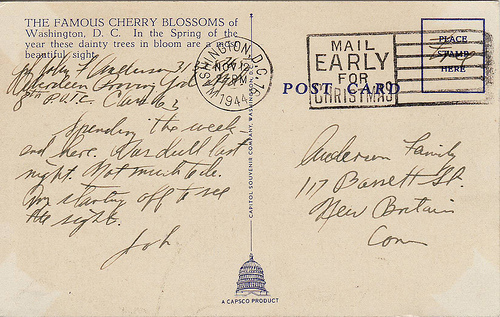 THE FAMOUS CHERRY BLOSSOMS of
Washington, D. C. In the Spring of the
year these dainty trees in bloom are a most
beautiful sight.
Aberdeen Proving Grd
Spending the week
end here. Was dull last
night. Not much to do.
Am starting off to see
the sights.
Joh
CAPITOL SOUVENIR COMPANY, WASHINGTON
A CAPSCO PRODUCT
WASHINGTON, D.C.
NOV 12
PM
1944
MAIL
EARLY
FOR
CHRISTMAS
PLACE
STAMP
HERE
POST CARD
Anderson Family
117 Bassett St.
New Britain
Conn